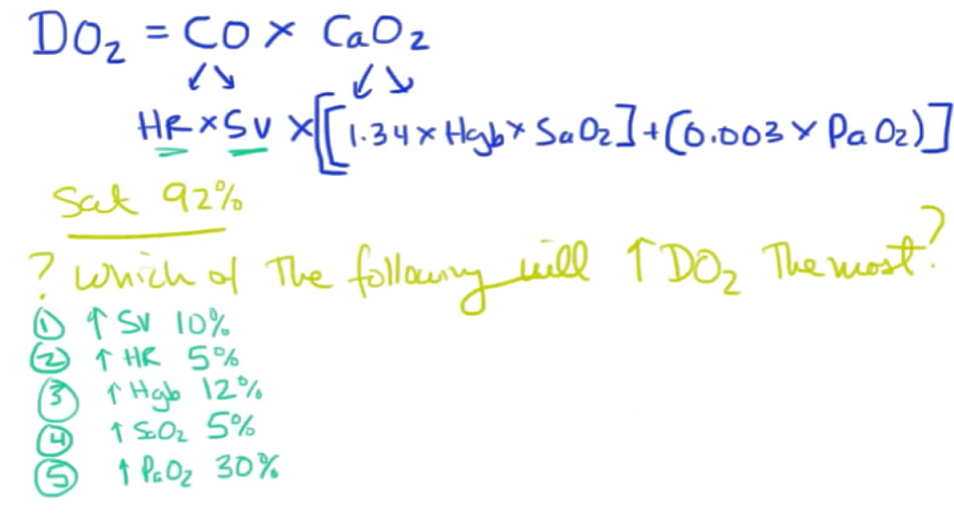 DO₂ = CO × CaO₂
HR × SV × [[1.34 × Hgb × SaO₂] + (0.003 × PaO₂)]
Sat 92%
? Which of The following will ↑ DO₂ The most?
① ↑ SV 10%
② ↑ HR 5%
③ ↑ Hgb 12%
④ ↑ SaO₂ 5%
⑤ ↑ PaO₂ 30%